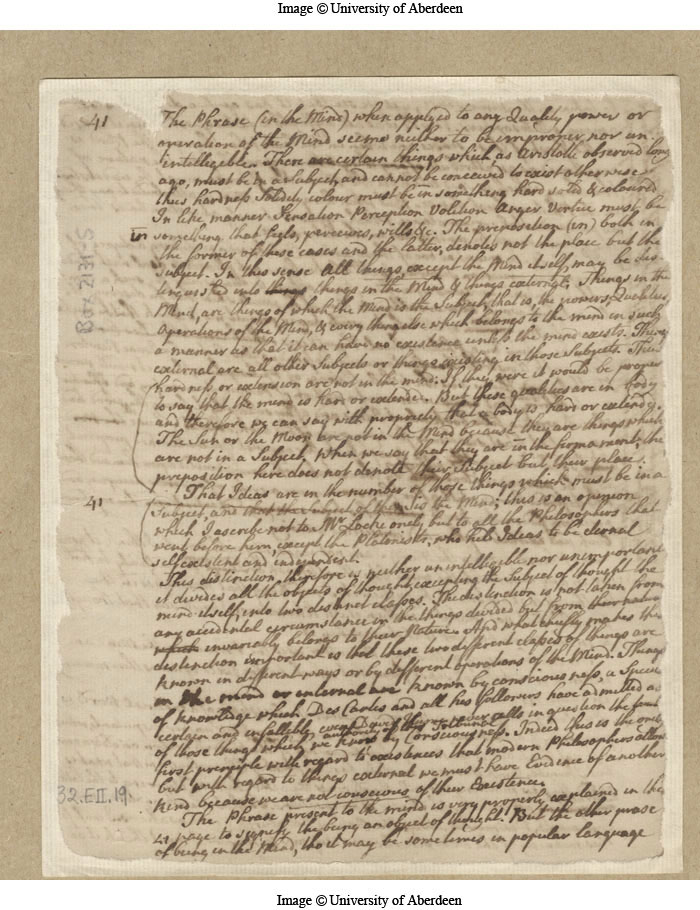 Image © University of Aberdeen
41
The Phrase (in the Mind) when applyed to any Quality power or
operation of the Mind seems neither to be improper, nor un
intelligible. There are certain things which as Aristotle observed long
ago, must be in a Subject, and cannot be conceived to exist otherwise
thus hardness Solidity colour must be in something hard solid & coloured
In like manner Sensation Perception Volition Anger Vertue must be
in something that feels, perceives, wills &c. The preposition (in) both in
the former of these cases and the latter, denotes not the place but the
Subject. In this sense all things, except the Mind itself, may be dis
tinguished into things things in the Mind & things external. Things in the
Mind, are things of which the Mind is the Subject, that is, the powers, Qualities,
operations of the Mind, & every thing else which belongs to the mind in such
a manner as that it can have no existence unless the mind exists. Things
external are all other Subjects or things existing in those Subjects. Thus
hardness or extension are not in the mind; If they were it would be proper
to say that the mind is hard or extended. But these qualities are in body
and therefore we can say with propriety that a body is hard or extended.
The Sun or the Moon are not in the Mind because they are things which
are not in a Subject. When we say that they are in the firmament, the
preposition here does not denote their Subject but their place.
41
That Ideas are in the number of those things which must be in a
Subject, and that the Subject of them is the Mind; this is an opinion
which I ascribe not to Mr Locke onely, but to all the Philosophers that
went before him, except the Platonists, who held Ideas to be eternal
selfexistent and independent.
This distinction, therefore is neither unintelligible nor unimportant
it divides all the objects of thought, excepting the Subject of thought the
mind itself, into two distinct classes. The distinction is not taken from
any accidental circumstance in the things divided but from their nature
which invariably belongs to their Nature. And what chiefly makes the
distinction important is that these two different classes of things are
known in different ways or by different operations of the Mind. Things
in the mind or internal are known by consciousness, a Species
of knowledge which Des Cartes and all his followers have admitted as
certain and infallible,
of those things which we know by Consciousness. Indeed this is the onely
first principle with regard to existences that modern Philosophers allow
but with regard to things external we must have Evidence of another
kind because we are not conscious of their Existence.
The Phrase present to the mind is very properly explained in the
41 page to signify the being an object of thought. But the other phrase
of being in the Mind, tho it may be sometimes in popular language
Box 2131-5
32.EII.19
Image © University of Aberdeen